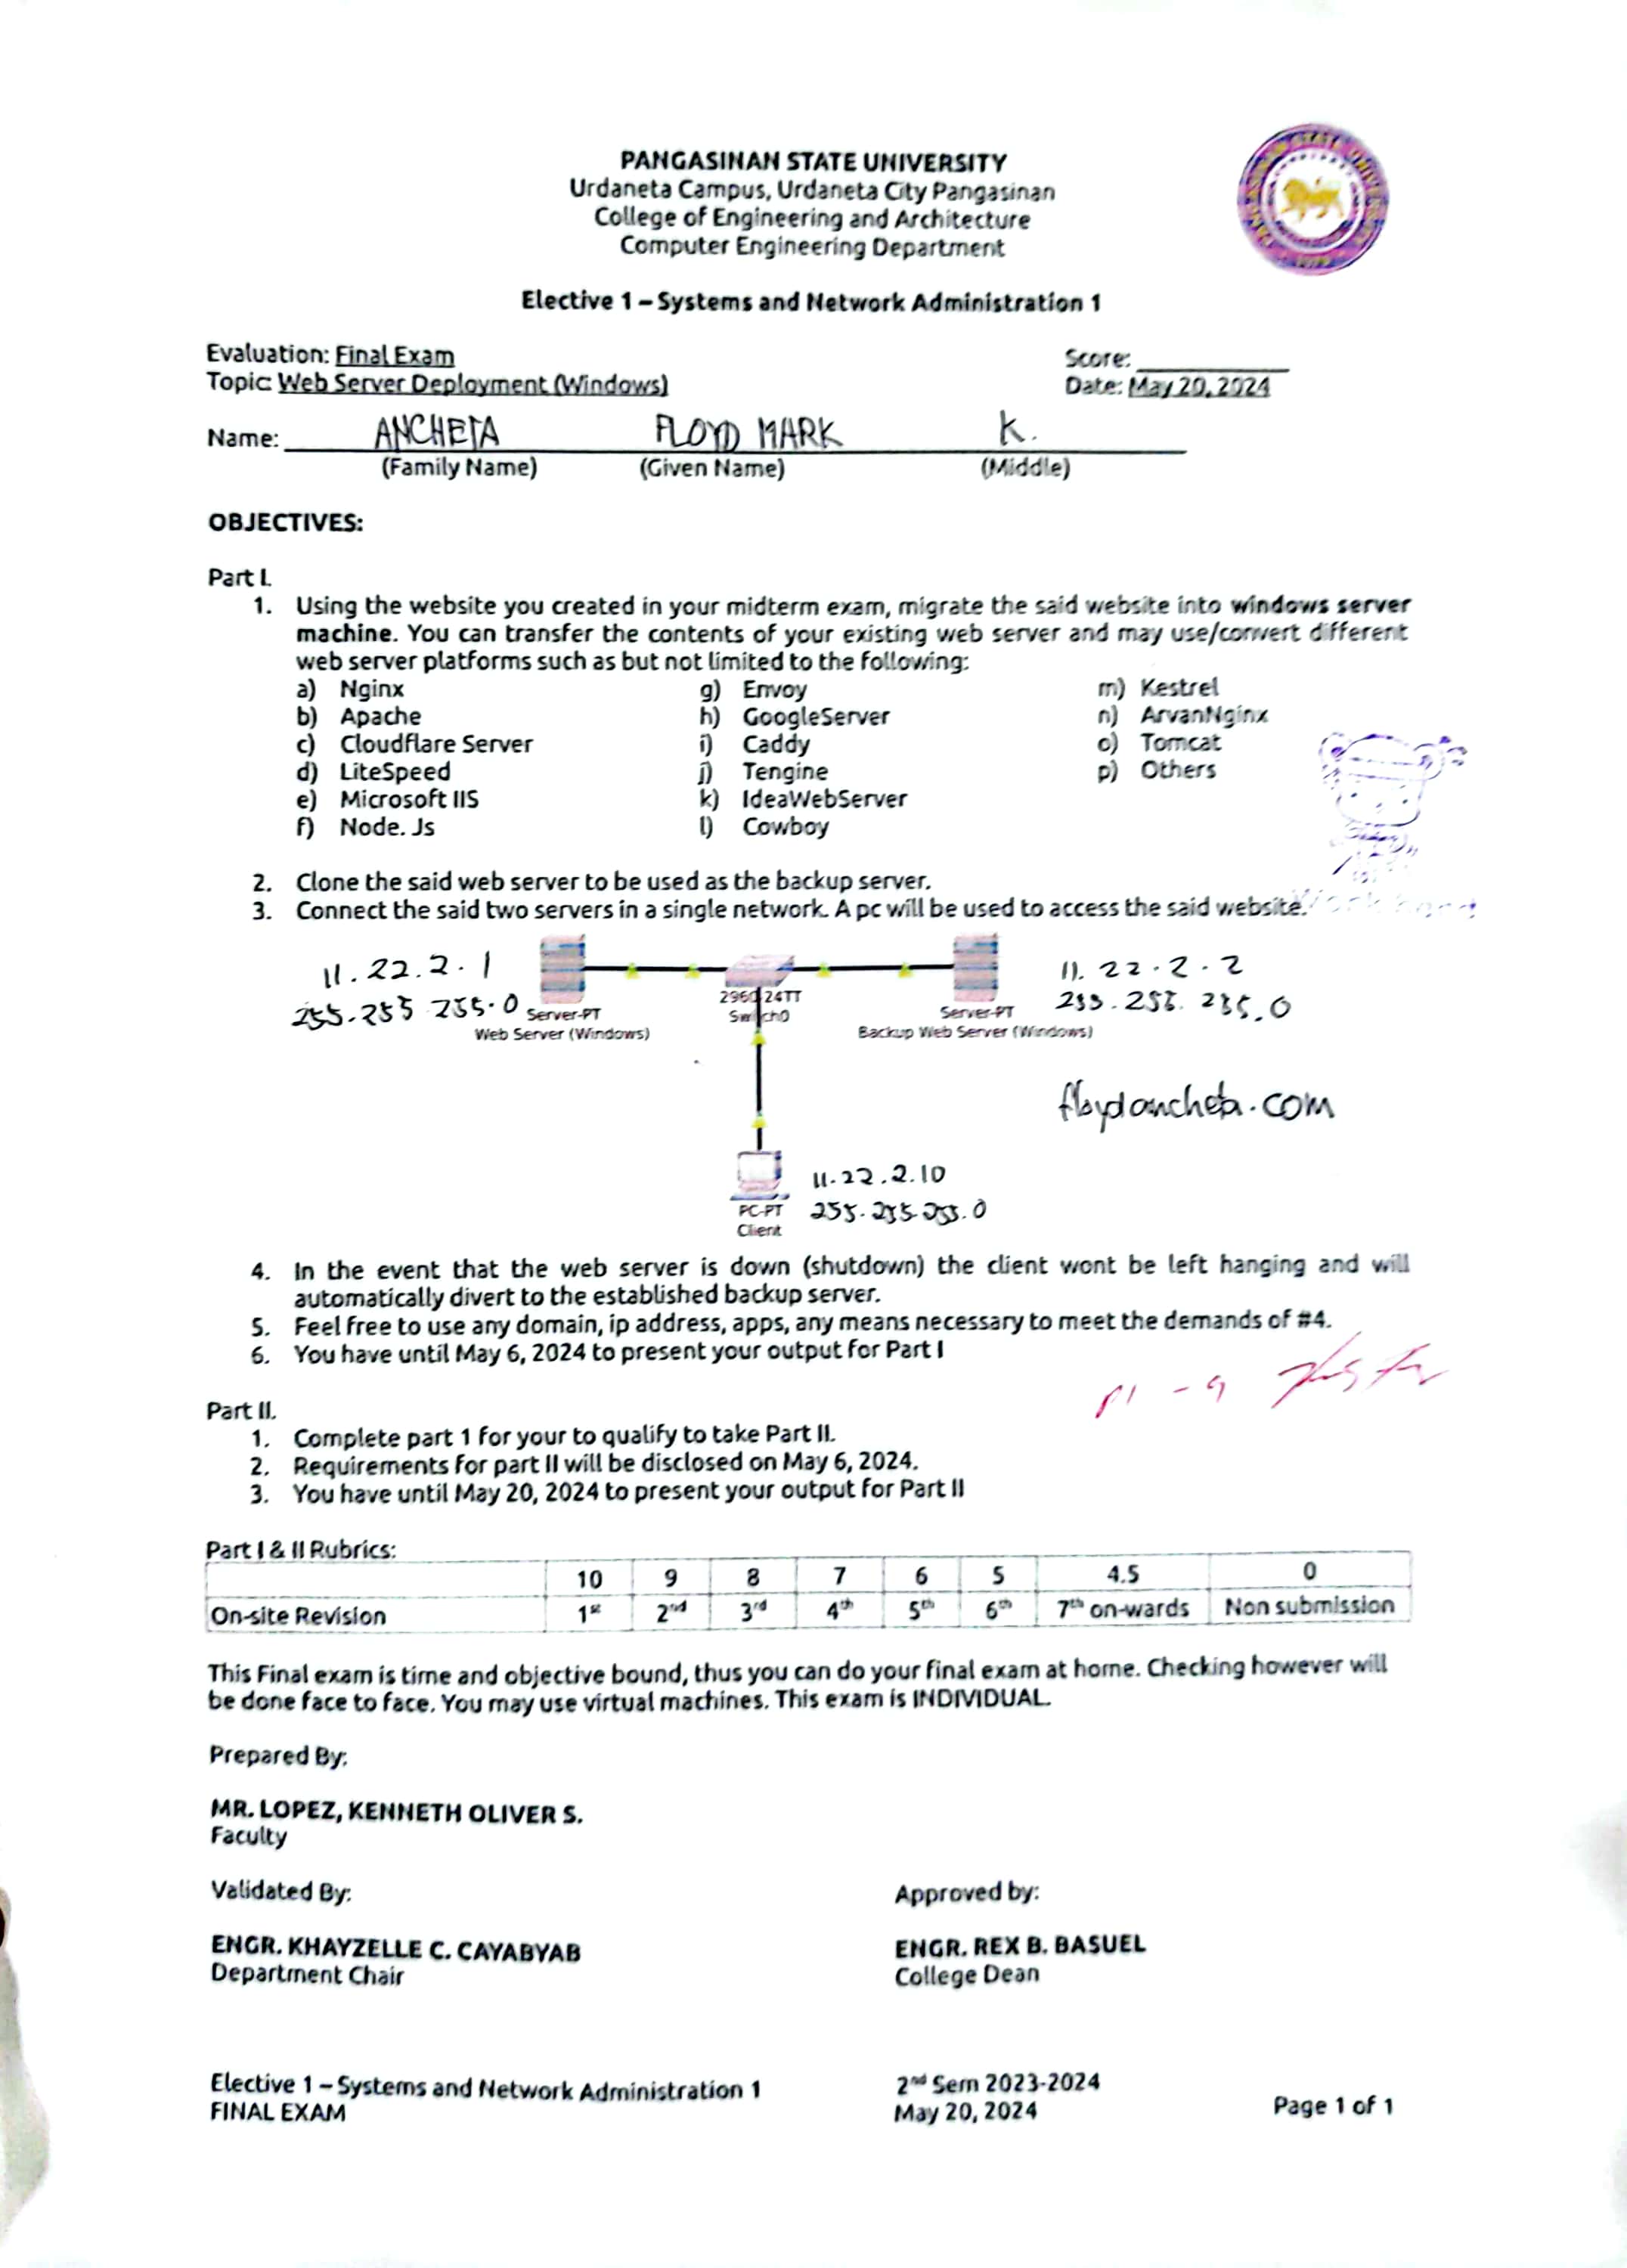 PANGASINAN STATE UNIVERSITY
Urdaneta Campus, Urdaneta City Pangasinan
College of Engineering and Architecture
Computer Engineering Department
Elective 1 – Systems and Network Administration 1
Evaluation: Final Exam
Score:
Topic: Web Server Deployment (Windows)
Date: May 20, 2024
Name: ANCHETA FLOYD MARK K.
(Family Name) (Given Name) (Middle)
OBJECTIVES:
Part I.
1. Using the website you created in your midterm exam, migrate the said website into windows server
machine. You can transfer the contents of your existing web server and may use/convert different
web server platforms such as but not limited to the following:
a) Nginx
b) Apache
c) Cloudflare Server
d) LiteSpeed
e) Microsoft IIS
f) Node. Js
g) Envoy
h) GoogleServer
i) Caddy
j) Tengine
k) IdeaWebServer
l) Cowboy
m) Kestrel
n) ArvanNginx
o) Tomcat
p) Others
2. Clone the said web server to be used as the backup server.
3. Connect the said two servers in a single network. A pc will be used to access the said website.
11.22.2.1
255.255.255.0
Server-PT
Web Server (Windows)
2960-24TT
Switch0
11.22.2.2
255.255.255.0
Server-PT
Backup Web Server (Windows)
floydancheta.com
11.22.2.10
255.255.255.0
PC-PT
Client
4. In the event that the web server is down (shutdown) the client wont be left hanging and will
automatically divert to the established backup server.
5. Feel free to use any domain, ip address, apps, any means necessary to meet the demands of #4.
6. You have until May 6, 2024 to present your output for Part I
P1 - 9
Part II.
1. Complete part 1 for your to qualify to take Part II.
2. Requirements for part II will be disclosed on May 6, 2024.
3. You have until May 20, 2024 to present your output for Part II
Part I & II Rubrics:
10 9 8 7 6 5 4.5 0
On-site Revision 1st 2nd 3rd 4th 5th 6th 7th on-wards Non submission
This Final exam is time and objective bound, thus you can do your final exam at home. Checking however will
be done face to face. You may use virtual machines. This exam is INDIVIDUAL.
Prepared By:
MR. LOPEZ, KENNETH OLIVER S.
Faculty
Validated By:
Approved by:
ENGR. KHAYZELLE C. CAYABYAB
Department Chair
ENGR. REX B. BASUEL
College Dean
Elective 1 – Systems and Network Administration 1
FINAL EXAM
2nd Sem 2023-2024
May 20, 2024
Page 1 of 1